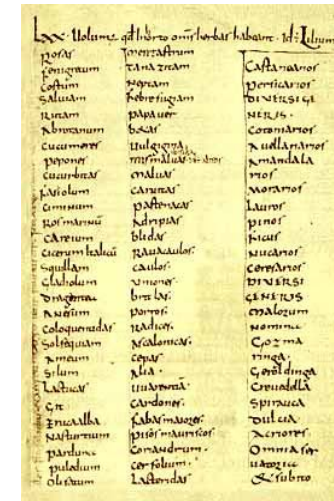 LXX. Uolumus qd in horto om̄s herbas habeant. Id ÷ Lilium
Rosas
fenigrecum
Costum
Saluiam
Rutam
Abrotanum
Cucumeres
pepones
Cucurbitas
fasiolum
Ciminum
Ros marinū
Careium
Cicerum Italicū
Squillam
Gladiolum
Dragantea
Anesum
Coloquentidas
Solsequiam
Ameum
Silum
Lactucas
Git
Eruca alba
Nasturtium
parduna
puledium
Olisatum
Tanazitam
Neptam
febrefugiam
papauer
betas
Uulgigina
maluas
Caruitas
pastenacas
Adripias
blidas
Rauacaulos
Caulos
Uniones
britlas
porros
Radices
Ascalonicas
Cepas
Alia
Uuarentiā
Cardones
fabas maiores
pisos mauriscos
Coriandrum
Cerfolium
Lacteridas
Castanearios
persicarios
DIVERSI GE
NERIS
Cotoniarios
Auellanarios
Amandala
rios
Morarios
Lauros
pinos
ficus
Nucarios
Ceresarios
DIVERSI
GENERIS
Malorum
nomina
Gozma
ringa
Geroldinga
Creuedella
Spirauca
Dulcia
Acriores
Omnia ser
uatoria
& subito